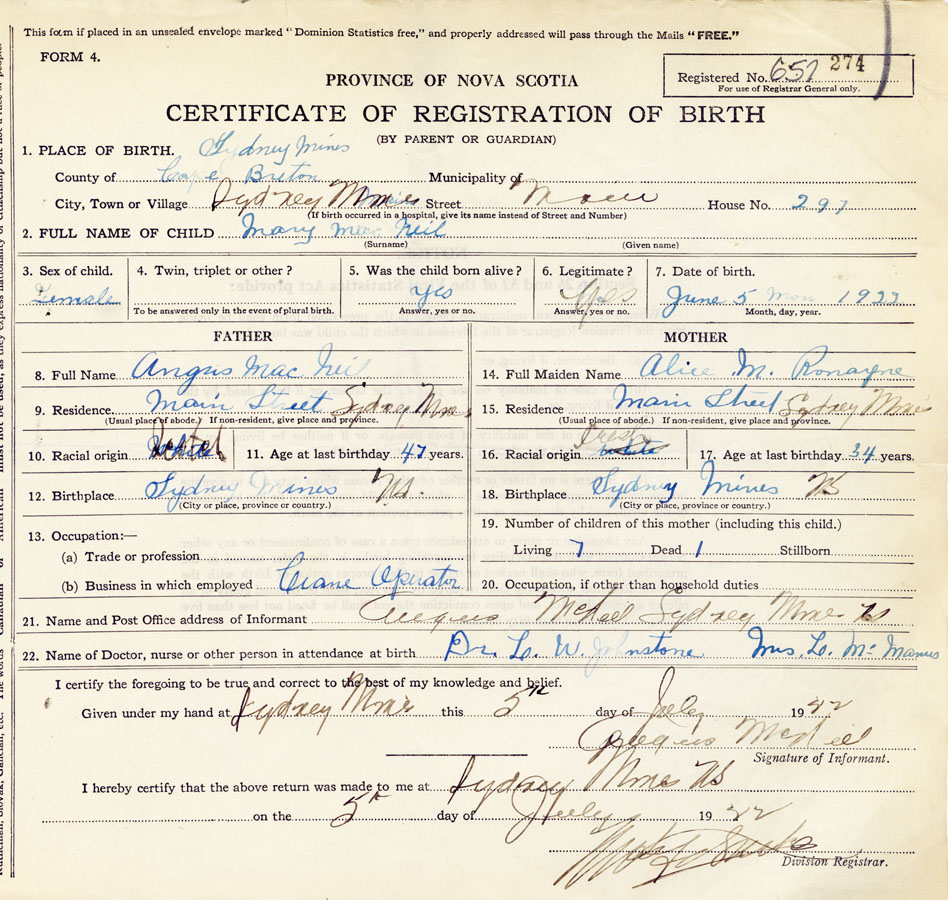 This form if placed in an unsealed envelope marked "Dominion Statistics free," and properly addressed will pass through the Mails "FREE."
FORM 4.
Registered No. 657 274
For use of Registrar General only.
PROVINCE OF NOVA SCOTIA
CERTIFICATE OF REGISTRATION OF BIRTH
(BY PARENT OR GUARDIAN)
1. PLACE OF BIRTH. Sydney Mines
County of Cape Breton Municipality of
City, Town or Village Sydney Mines Street Main House No. 297
(If birth occurred in a hospital, give its name instead of Street and Number)
2. FULL NAME OF CHILD Mary Mac Neil
(Surname) (Given name)
3. Sex of child. 4. Twin, triplet or other? 5. Was the child born alive? 6. Legitimate? 7. Date of birth.
Female yes yes June 5 Mon 1922
To be answered only in the event of plural birth. Answer, yes or no. Answer, yes or no. Month, day, year.
FATHER MOTHER
8. Full Name Angus Mac Neil 14. Full Maiden Name Alice M. Ronayne
9. Residence Main Street Sydney Mines 15. Residence Main Street Sydney Mines
(Usual place of abode.) If non-resident, give place and province. (Usual place of abode.) If non-resident, give place and province.
10. Racial origin Scotch 11. Age at last birthday 47 years. 16. Racial origin Irish white 17. Age at last birthday 34 years.
12. Birthplace Sydney Mines NS. 18. Birthplace Sydney Mines NS
(City or place, province or country.) (City or place, province or country.)
13. Occupation:— 19. Number of children of this mother (including this child.)
(a) Trade or profession Living 7 Dead 1 Stillborn
(b) Business in which employed Crane Operator 20. Occupation, if other than household duties
21. Name and Post Office address of Informant Angus McNeil Sydney Mines NS
22. Name of Doctor, nurse or other person in attendance at birth Dr. L. W. Johnstone Mrs. L. McManus
I certify the foregoing to be true and correct to the best of my knowledge and belief.
Given under my hand at Sydney Mines this 5th day of July 1922
Angus McNeil
Signature of Informant.
I hereby certify that the above return was made to me at Sydney Mines NS
on the 5th day of July 1922
Division Registrar.